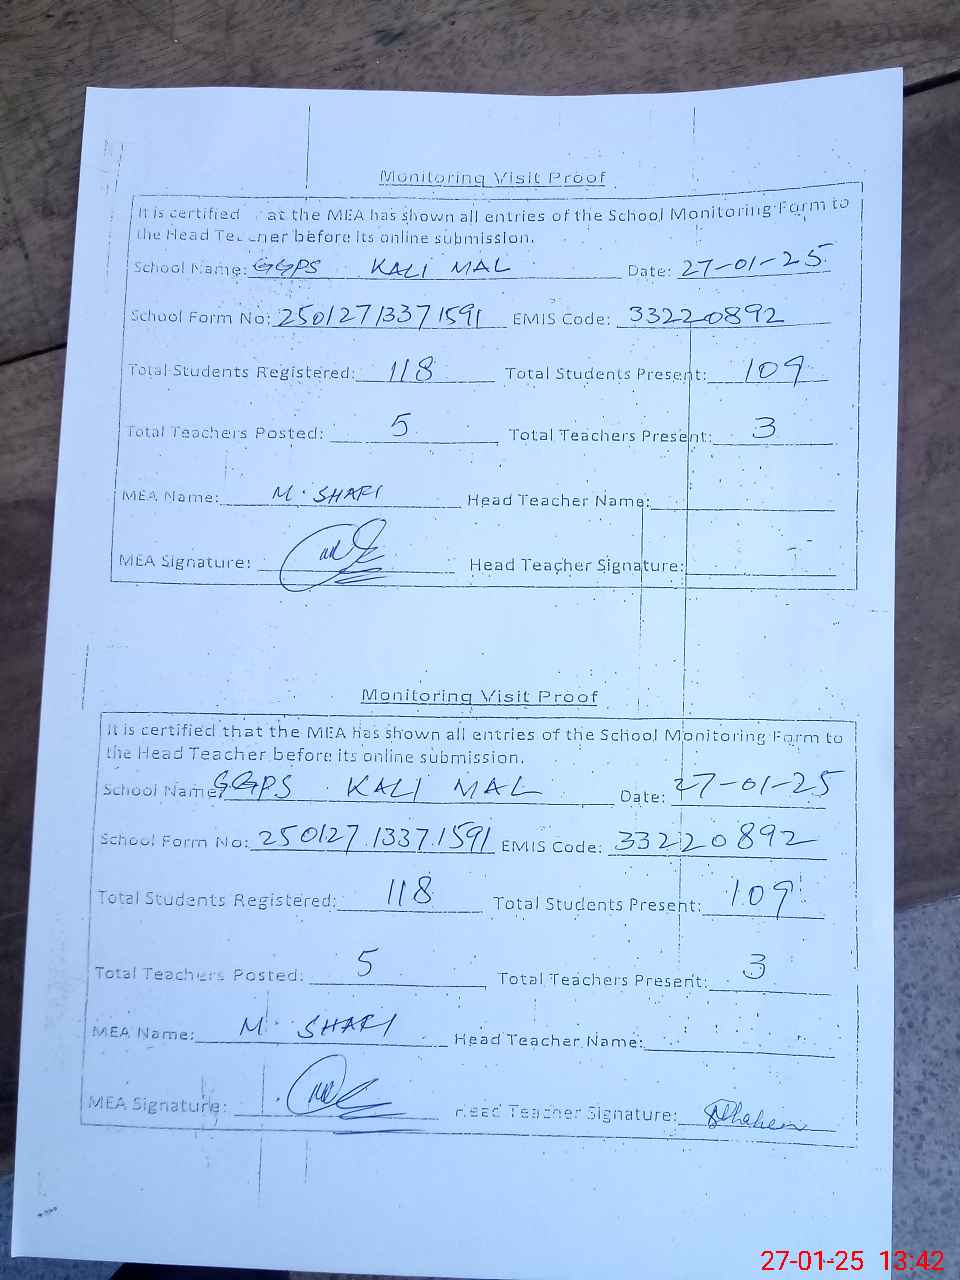 Monitoring Visit Proof
It is certified at the MEA has shown all entries of the School Monitoring Form to
the Head Teacher before its online submission.
School Name: GGPS KALI MAL Date: 27-01-25
School Form No: 25012713371591 EMIS Code: 33220892
Total Students Registered: 118 Total Students Present: 109
Total Teachers Posted: 5 Total Teachers Present: 3
MEA Name: M. SHAFI Head Teacher Name:
MEA Signature: Head Teacher Signature:
Monitoring Visit Proof
It is certified that the MEA has shown all entries of the School Monitoring Form to
the Head Teacher before its online submission.
School Name: GGPS KALI MAL Date: 27-01-25
School Form No: 250127.1337.1591 EMIS Code: 33220892
Total Students Registered: 118 Total Students Present: 109
Total Teachers Posted: 5 Total Teachers Present: 3
MEA Name: M. SHAFI Head Teacher Name:
MEA Signature: Head Teacher Signature:
27-01-25 13:42